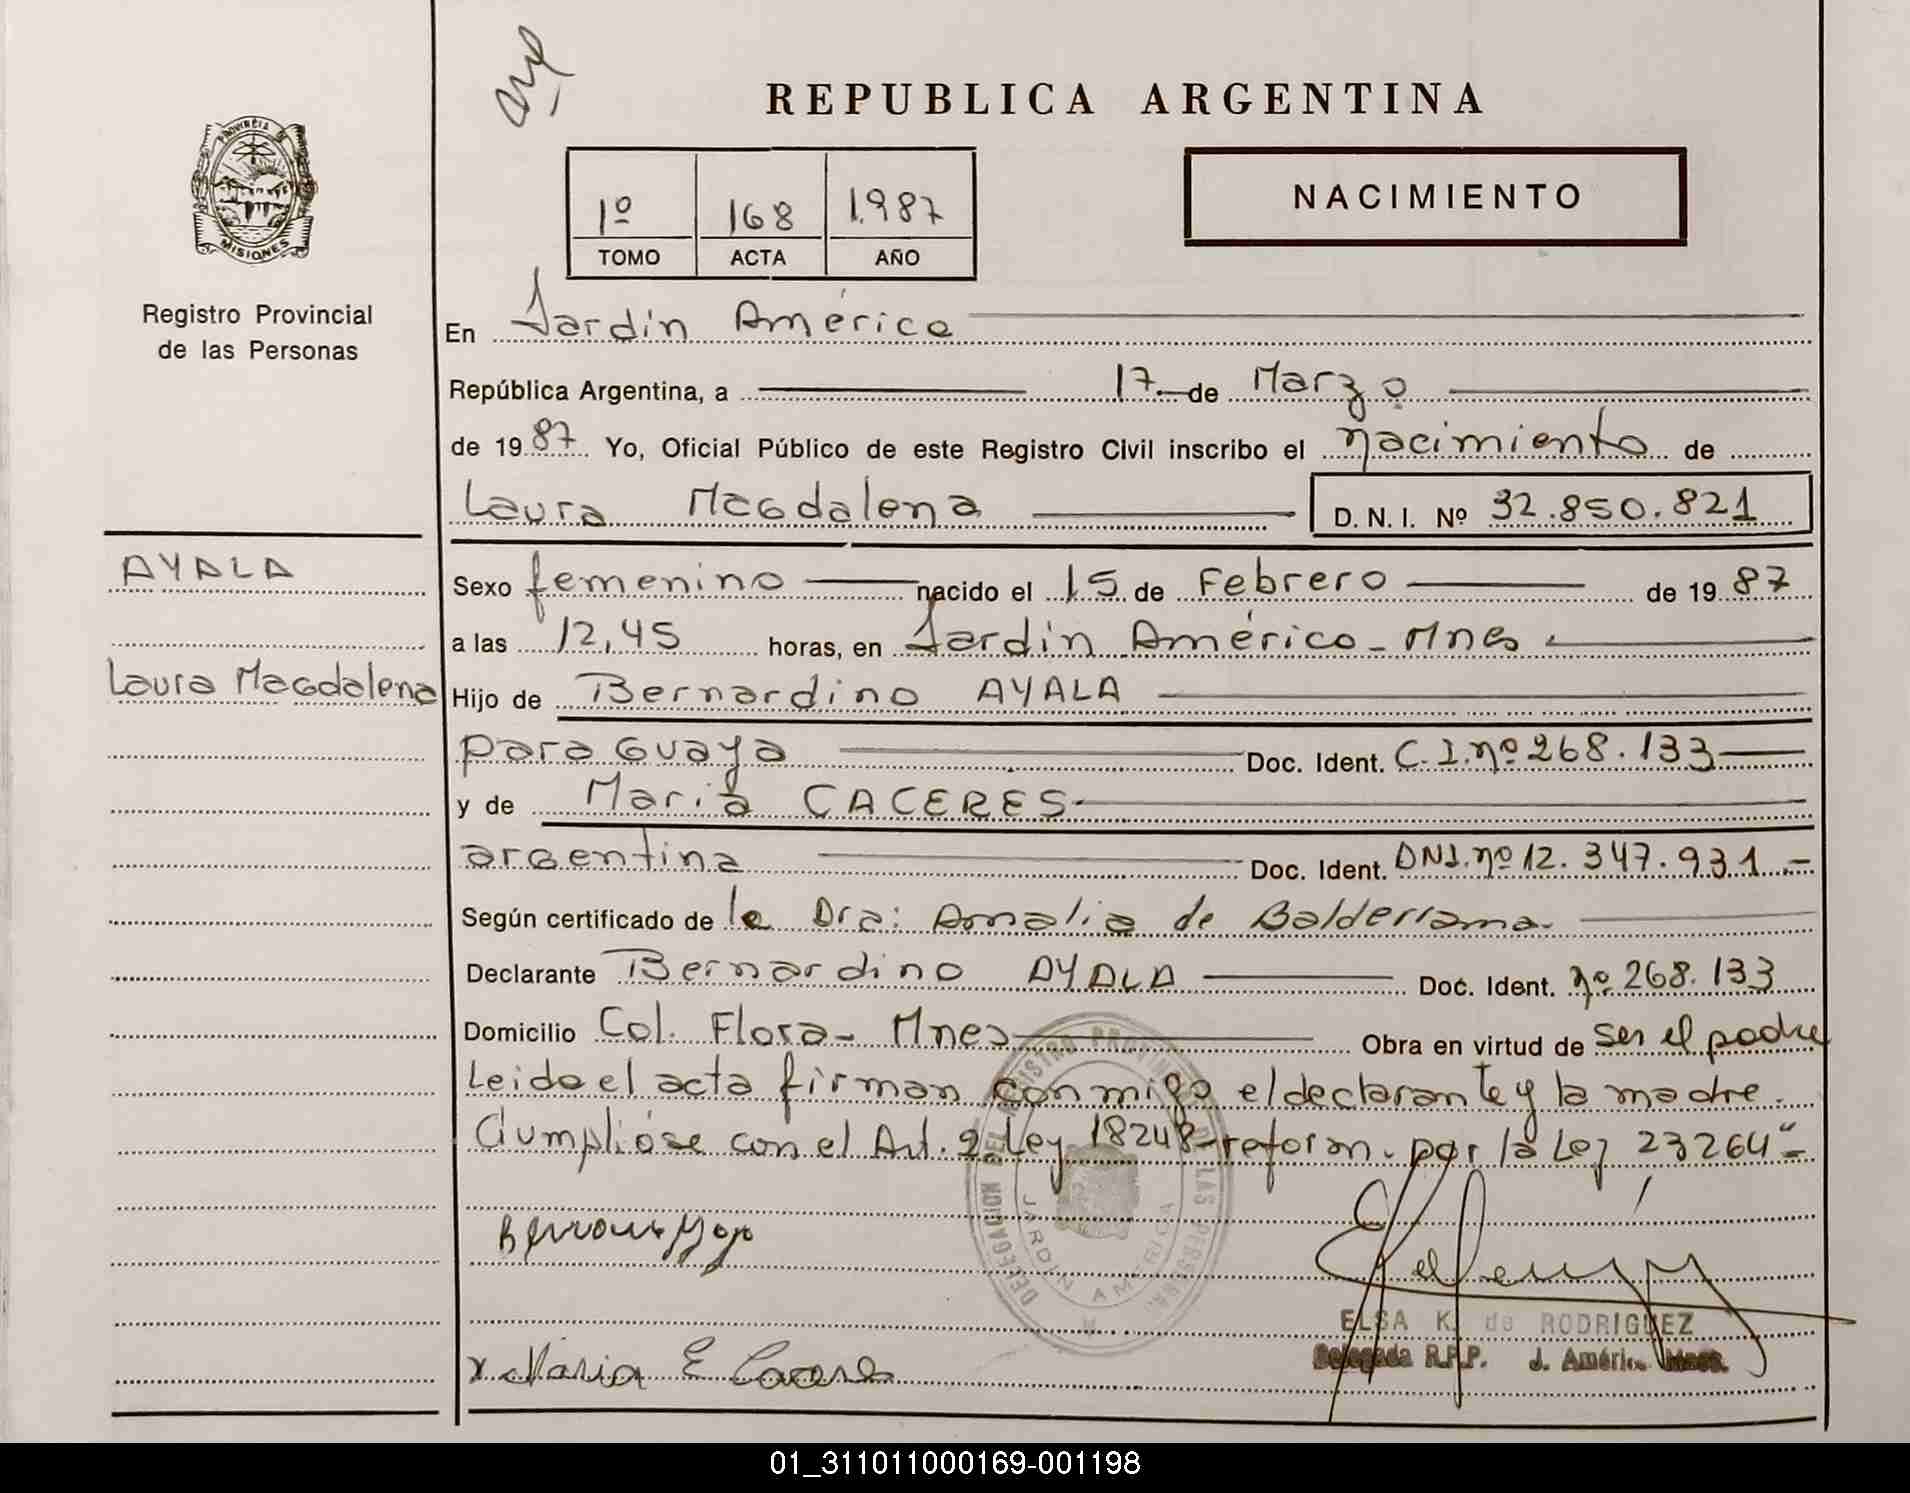 REPUBLICA ARGENTINA
PROVINCIA DE
MISIONES
Registro Provincial
de las Personas
1º 168 1.987
TOMO ACTA AÑO
NACIMIENTO
En Jardín América
República Argentina, a 17 de Marzo
de 1987 Yo, Oficial Público de este Registro Civil inscribo el nacimiento de
Laura Magdalena D. N. I. Nº 32.850.821
AYALA
Laura Magdalena
Sexo femenino nacido el 15 de Febrero de 1987
a las 12,45 horas, en Jardín América - Mnes
Hijo de Bernardino AYALA
paraguaya Doc. Ident. C.I. nº 268.133
y de María CACERES
argentina Doc. Ident. DNI. nº 12.347.931.-
Según certificado de la Dra: Amalia de Balderrama.
Declarante Bernardino AYALA Doc. Ident. nº 268.133
Domicilio Col. Flora - Mnes Obra en virtud de ser el padre
Leida el acta firman conmigo el declarante y la madre.
Cumplióse con el Art. 2 Ley 18248 - reform. por la Ley 23264"-
DELEGACION DEL REGISTRO PROVINCIAL DE LAS PERSONAS
JARDIN AMERICA
ELSA K. de RODRIGUEZ
Delegada R.P.P. J. América Mnes.
x Maria E Caceres
01_311011000169-001198